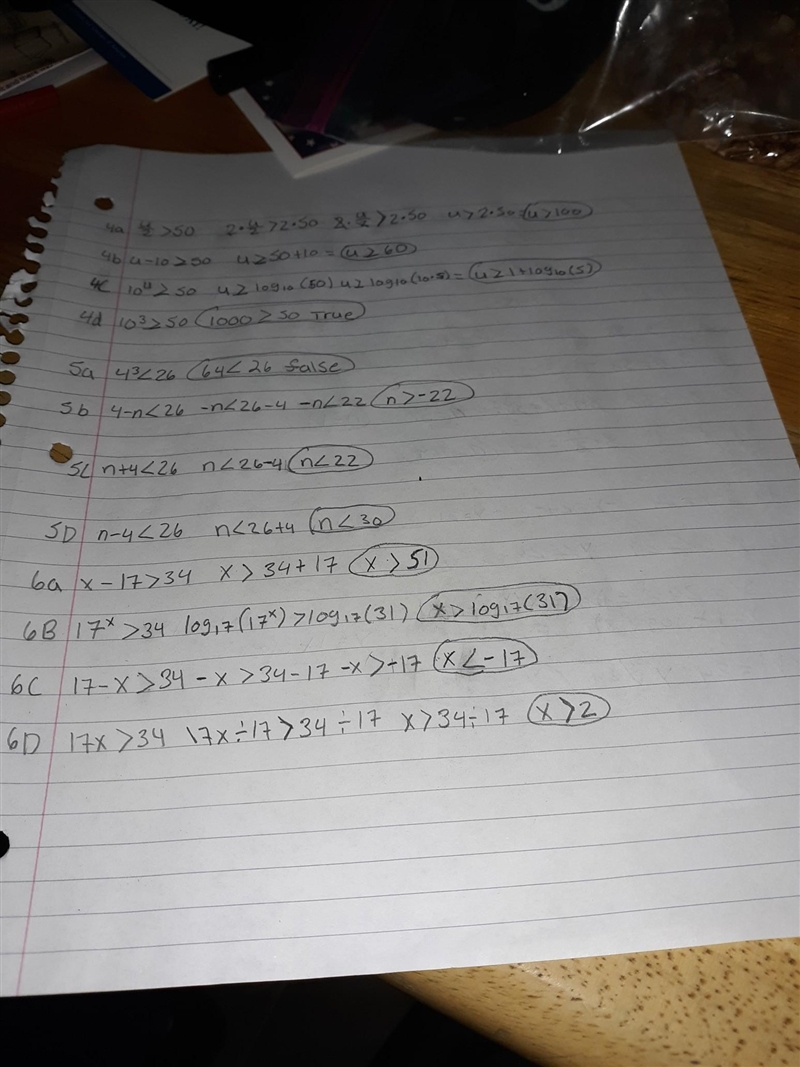 4a u/2 > 50 2·u/2 > 2·50 2·u/2 > 2·50 u > 2·50 u > 100
4b u-10 ≥ 50 u ≥ 50+10 = u ≥ 60
4c 10^u ≥ 50 u ≥ log10(50) u ≥ log10(10·5) = u ≥ 1+log10(5)
4d 10³ ≥ 50 1000 ≥ 50 True
5a 4³ < 26 64 < 26 false
5b 4-n < 26 -n < 26-4 -n < 22 n > -22
5c n+4 < 26 n < 26-4 n < 22
5D n-4 < 26 n < 26+4 n < 30
6a x-17 > 34 x > 34+17 x > 51
6B 17^x > 34 log17(17^x) > log17(31) x > log17(31)
6C 17-x > 34 -x > 34-17 -x > 17 x < -17
6D 17x > 34 17x÷17 > 34÷17 x > 34÷17 x > 2